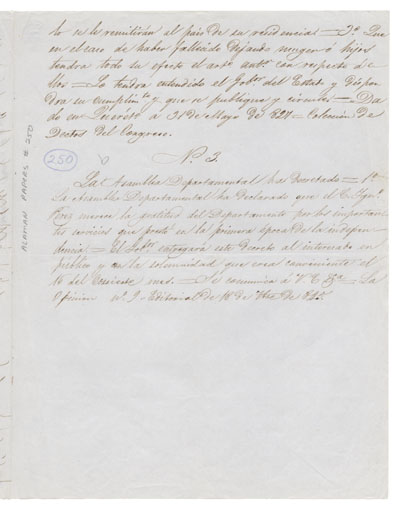 lo se le remitirán al pais de su residencia = 3º Que
en el caso de haber fallecido dejando muger ó hijos
tendra todo su efecto el artº antº con respecto de
ellos = Lo tendra entendido el Gobºr del Estado y dispon
dra su cumplimtº y que se publique y circule = Da
do en Durango á 31 de Mayo de 827 = Coleccion de
Dectos del Congreso.
250
Nº 3.
La Asamblea Departamental ha decretado = 1º
La Asamblea Departamental ha declarado que el C. Ygnº
merece la gratitud del Departamento por los importan
tes servicios que prestó en la primera epoca de la indepen
dencia = El Gobº entregará este decreto al interesado en
publico y con la solemnidad que crea conveniente el
16 del Corriente mes. = Se comunica á V. E. &ª = La
Opinion nº 9 = Editorial de 18 de 7bre de 845.
ALAMAN PAPERS # 250